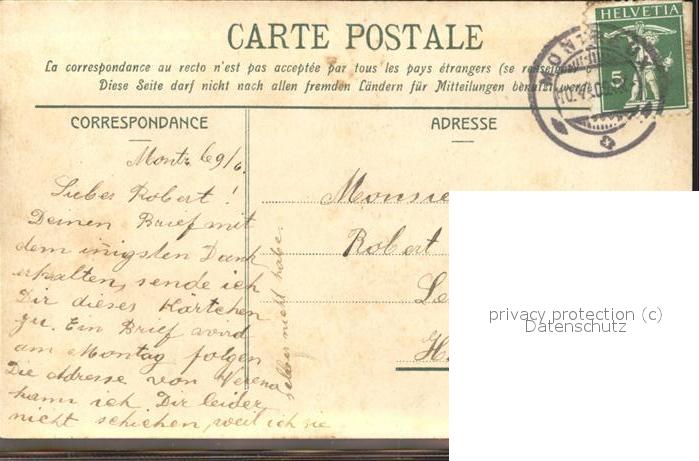 CARTE POSTALE
HELVETIA
5
La correspondance au recto n'est pas acceptée par tous les pays étrangers (se renseigne
Diese Seite darf nicht nach allen fremden Ländern für Mitteilungen benutzt werde
CORRESPONDANCE
ADRESSE
Lieber Robert!
Deinen Brief mit
dem inigsten Dank
erhalten, sende ich
Dir dieses Kärtchen
zu. Ein Brief wird
am Montag folgen
Die Adresse von Verena
kann ich Dir leider
nicht schicken, weil ich sie
selber nicht habe.
Monsie
Robert
Le
H
privacy protection (c)
Datenschutz